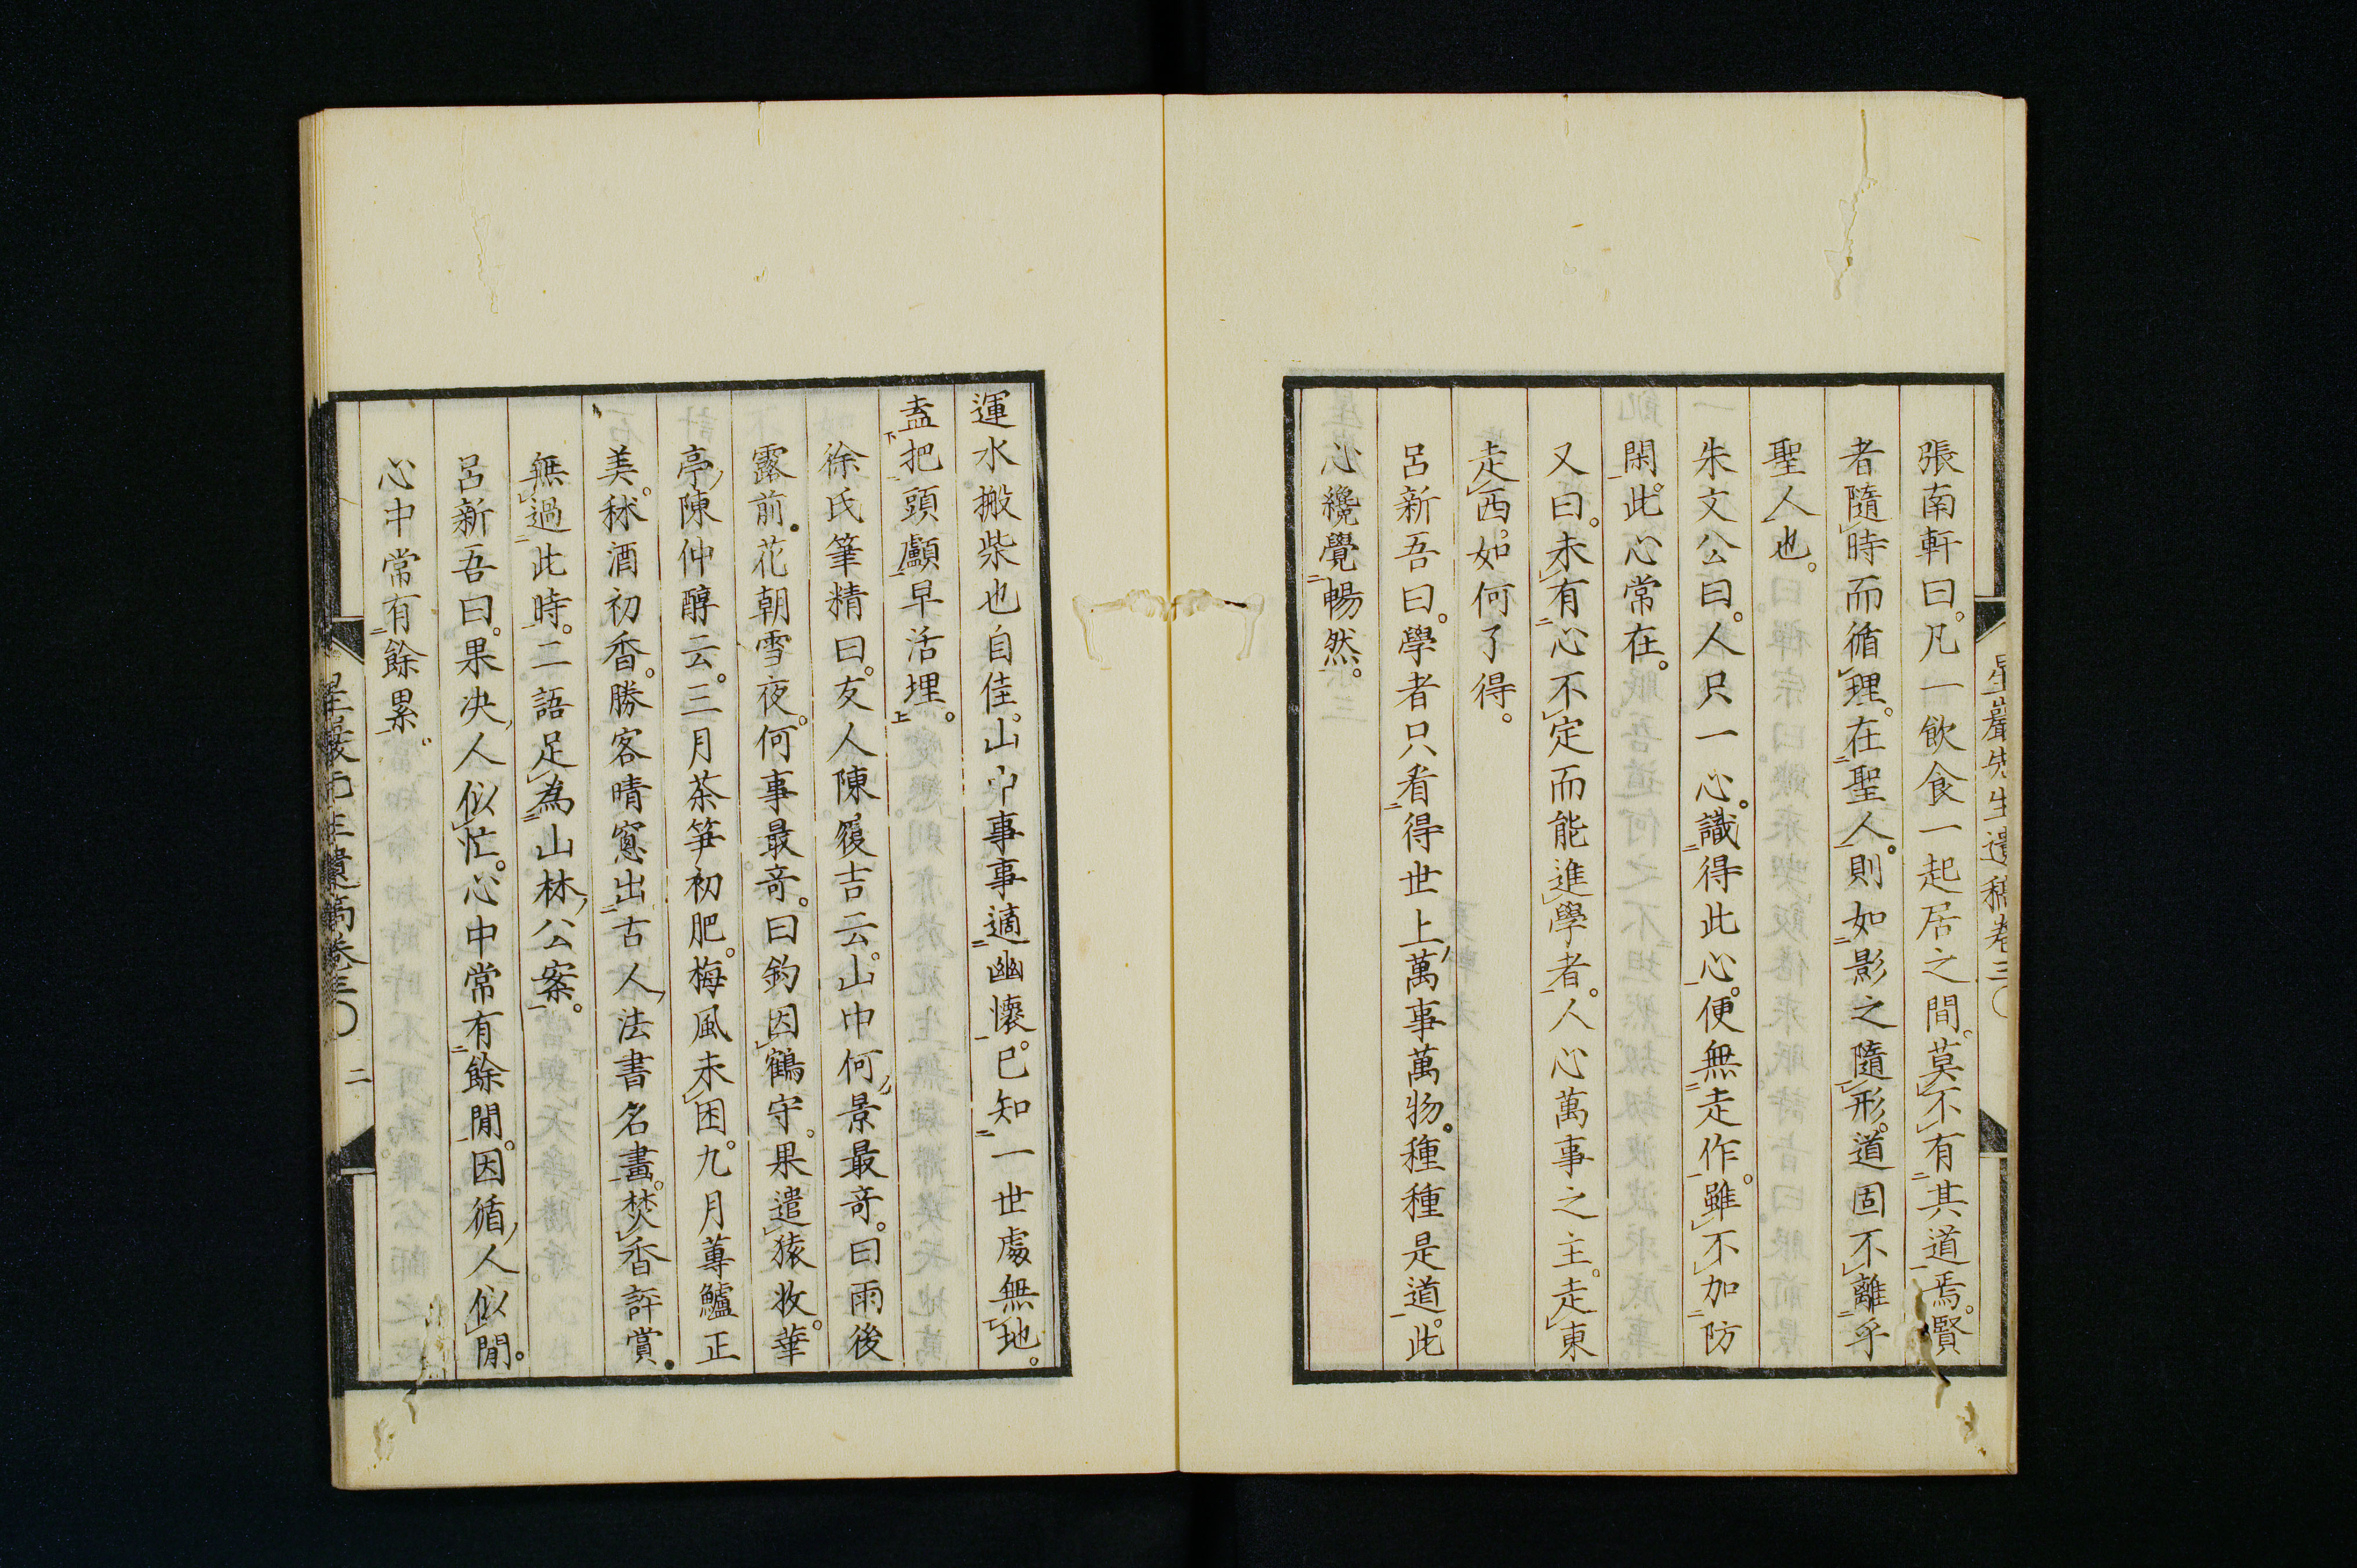 星巖先生遺稿卷三
張南軒曰。凡一飲食一起居之間。莫不有其道焉。賢
者隨時而循理。在聖人。則如影之隨形。道固不離乎
聖人也。
朱文公曰。人只一心。識得此心。便無走作。雖不加防
閑。此心常在。
又曰。未有心不定而能進學者。人心萬事之主。走東
走西。如何了得。
呂新吾曰。學者只看得世上萬事萬物。種種是道。此
心纔覺暢然。
運水搬柴也自佳。山中事事適幽懷。已知一世處無地。
盍把頭顱早活埋。
徐氏筆精曰。友人陳履吉云。山中何景最奇。曰雨後
露前。花朝雪夜。何事最奇。曰釣因鶴守。果遣猿收。華
亭陳仲醇云。三月茶笋初肥。梅風未困。九月蓴鱸正
美。秫酒初香。勝客晴窻出古人法書名畫。焚香評賞。
無過此時。二語足為山林公案。
呂新吾曰。果决人似忙。心中常有餘閒。因循人似閒。
心中常有餘累。
星巖先生遺稿卷三 二